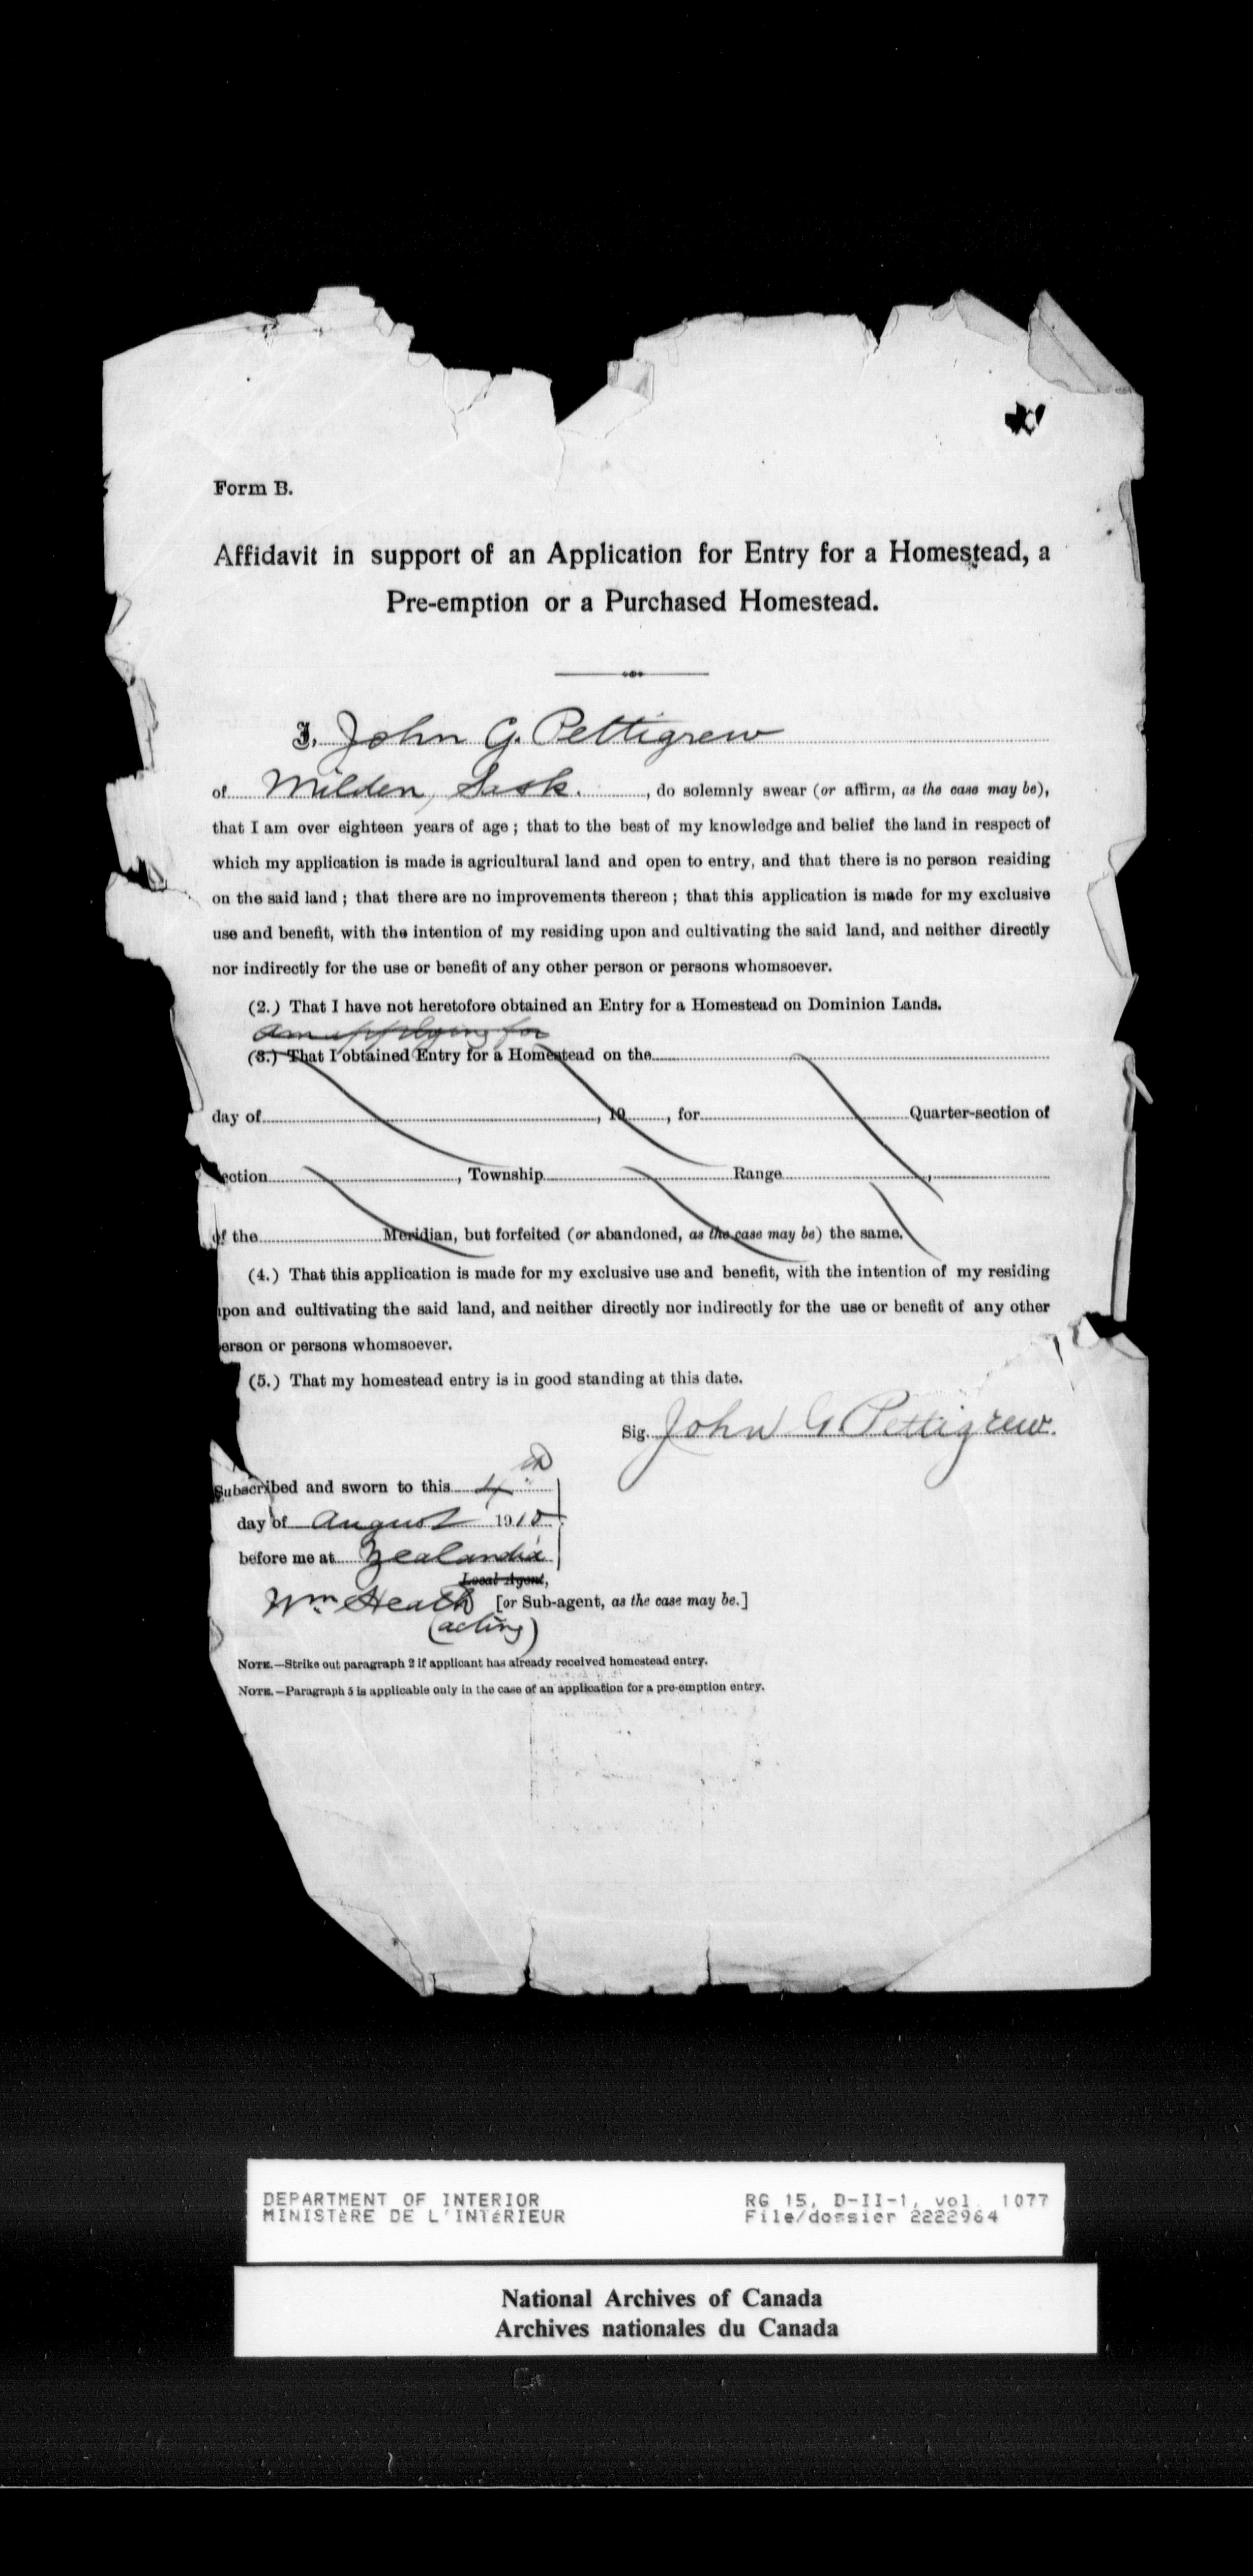 Form B.
Affidavit in support of an Application for Entry for a Homestead, a
Pre-emption or a Purchased Homestead.
I, John G. Pettigrew
of Milden, Sask. , do solemnly swear (or affirm, as the case may be),
that I am over eighteen years of age ; that to the best of my knowledge and belief the land in respect of
which my application is made is agricultural land and open to entry, and that there is no person residing
on the said land ; that there are no improvements thereon ; that this application is made for my exclusive
use and benefit, with the intention of my residing upon and cultivating the said land, and neither directly
nor indirectly for the use or benefit of any other person or persons whomsoever.
(2.) That I have not heretofore obtained an Entry for a Homestead on Dominion Lands.
am applying for
(3.) That I obtained Entry for a Homestead on the
day of , 19 , for Quarter-section of
ection , Township Range ,
of the Meridian, but forfeited (or abandoned, as the case may be) the same.
(4.) That this application is made for my exclusive use and benefit, with the intention of my residing
upon and cultivating the said land, and neither directly nor indirectly for the use or benefit of any other
erson or persons whomsoever.
(5.) That my homestead entry is in good standing at this date.
Sig. John G. Pettigrew.
Subscribed and sworn to this 4th
day of August 1910
before me at Zealandia
Local Agent,
Wm Heath [or Sub-agent, as the case may be.]
(acting)
NOTE.—Strike out paragraph 2 if applicant has already received homestead entry.
NOTE.—Paragraph 5 is applicable only in the case of an application for a pre-emption entry.
DEPARTMENT OF INTERIOR RG 15, D-II-1, vol. 1077
MINISTÈRE DE L'INTÉRIEUR File/dossier 2222964
National Archives of Canada
Archives nationales du Canada